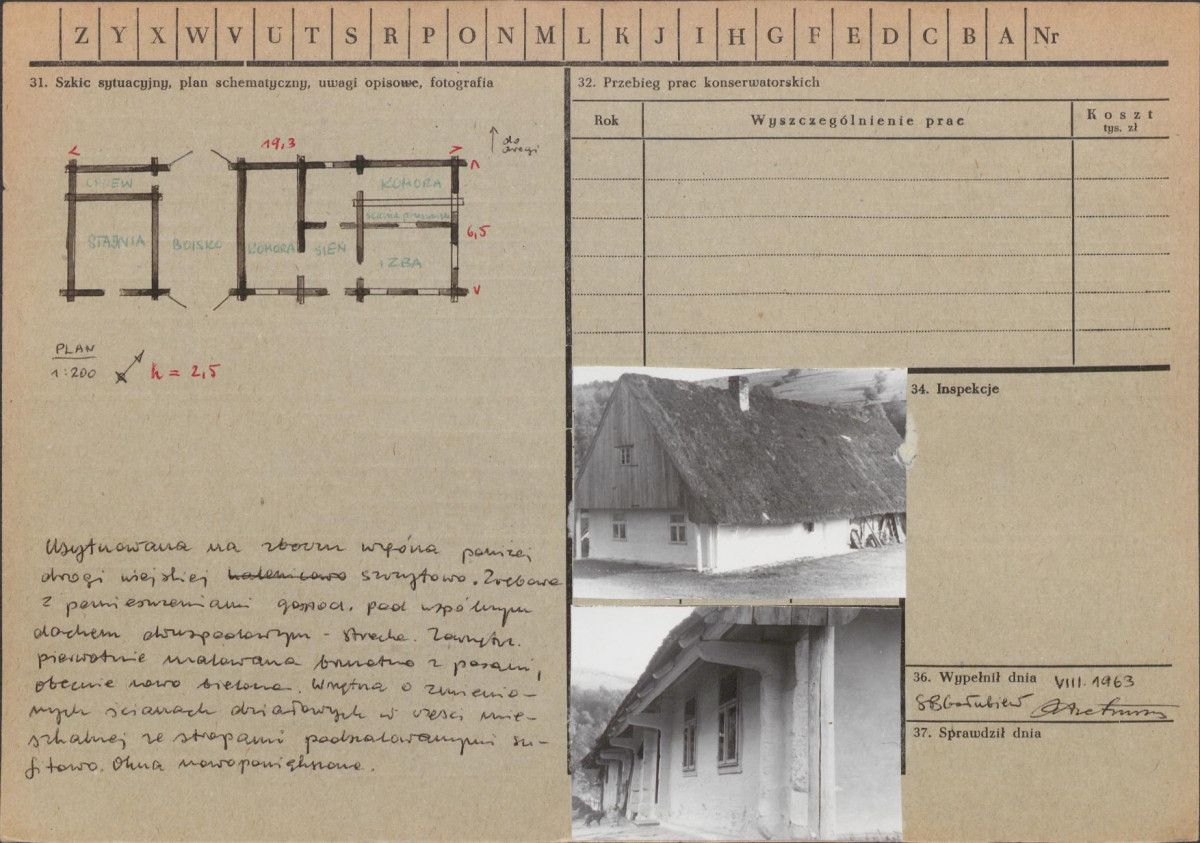 Z Y X W V U T S R P O N M L K J I H G F E D C B A Nr
31. Szkic sytuacyjny, plan schematyczny, uwagi opisowe, fotografia
19,3
do drogi
CHLEW
KOMORA
STAJNIA
BOISKO
KOMORA
SIEŃ
IZBA
6,5
PLAN
1:200
h = 2,5
Usytuowana na zboczu wzgórza poniżej
drogi wiejskiej szczytowo. Zrębowa
z pomieszczeniami gospod. pod wspólnym
dachem dwuspadowym - strzecha. Zewnątrz.
pierwotnie malowana brunatno z pasami,
obecnie nowo bielona. Wnętrza o zmienio-
nych ścianach działowych w części mie-
szkalnej ze stropami podszalowanymi su-
fitowo. Okna nowopowiększone.
32. Przebieg prac konserwatorskich
Rok
Wyszczególnienie prac
Koszt
tys. zł
34. Inspekcje
36. Wypełnił dnia VIII. 1963
37. Sprawdził dnia